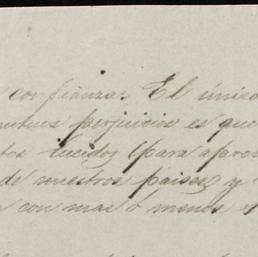 confianza. El único
perjuicios es que
tos lucidos (para
de nuestros paises, y
con mas o menos